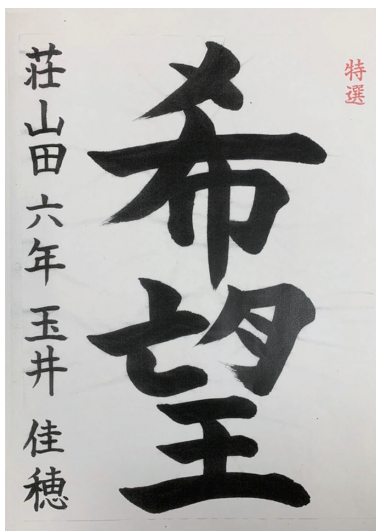 特選
希望
荘山田六年玉井佳穂